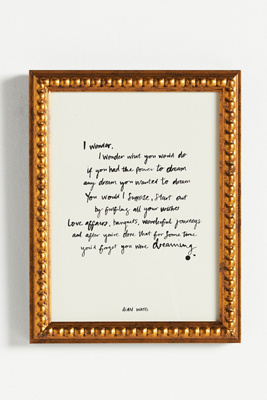 I wonder,
I wonder what you would do
if you had the power to dream
any dream you wanted to dream
You would I suppose, start out
by fulfiling all your wishes
Love affairs, banquets, wonderful journeys
and after you've done that for some time
you'd forget you were dreaming.
ALAN WATTS